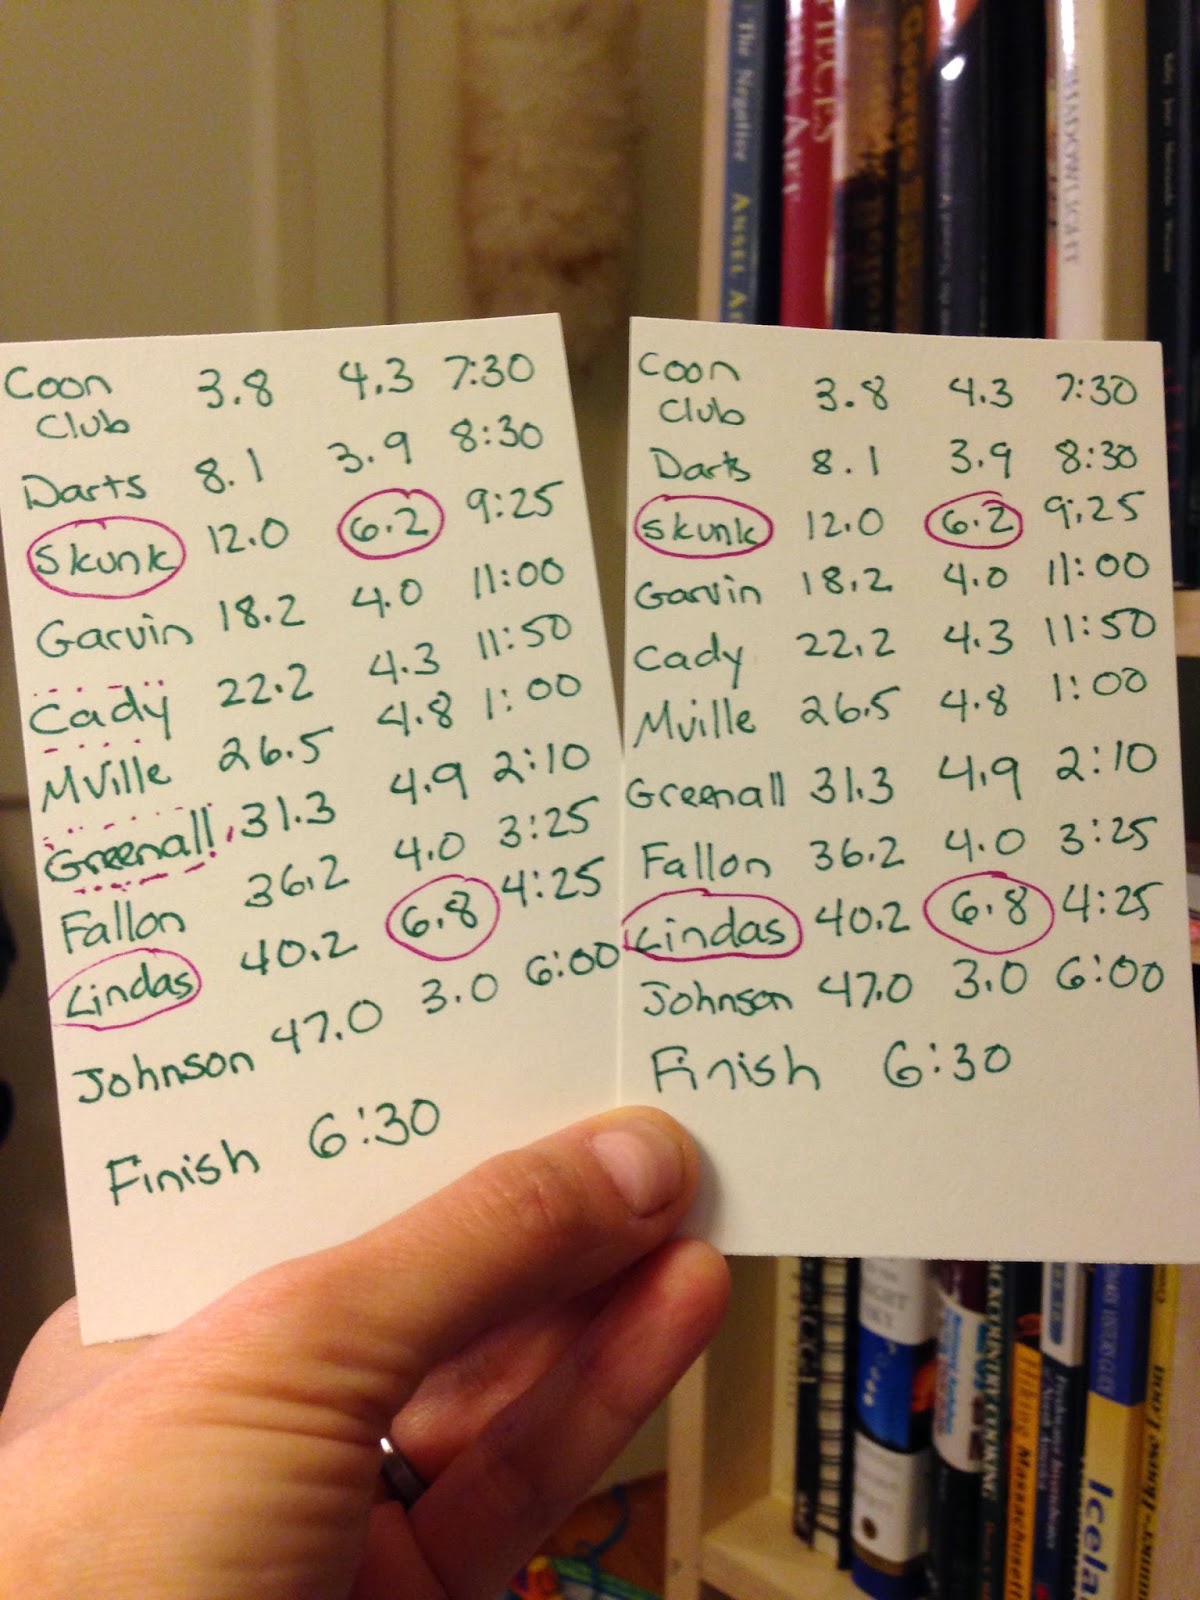 Coon 3.8 4.3 7:30
Club
Darts 8.1 3.9 8:30
Skunk 12.0 6.2 9:25
Garvin 18.2 4.0 11:00
Cady 22.2 4.3 11:50
Mville 26.5 4.8 1:00
Greenall 31.3 4.9 2:10
Fallon 36.2 4.0 3:25
Lindas 40.2 6.8 4:25
Johnson 47.0 3.0 6:00
Finish 6:30
Coon 3.8 4.3 7:30
Club
Darts 8.1 3.9 8:30
Skunk 12.0 6.2 9:25
Garvin 18.2 4.0 11:00
Cady 22.2 4.3 11:50
Mville 26.5 4.8 1:00
Greenall 31.3 4.9 2:10
Fallon 36.2 4.0 3:25
Lindas 40.2 6.8 4:25
Johnson 47.0 3.0 6:00
Finish 6:30
The Negative ANSEL
ART
George
BACKCOUNTRY COOKING
Hiking Massachusett
Icela